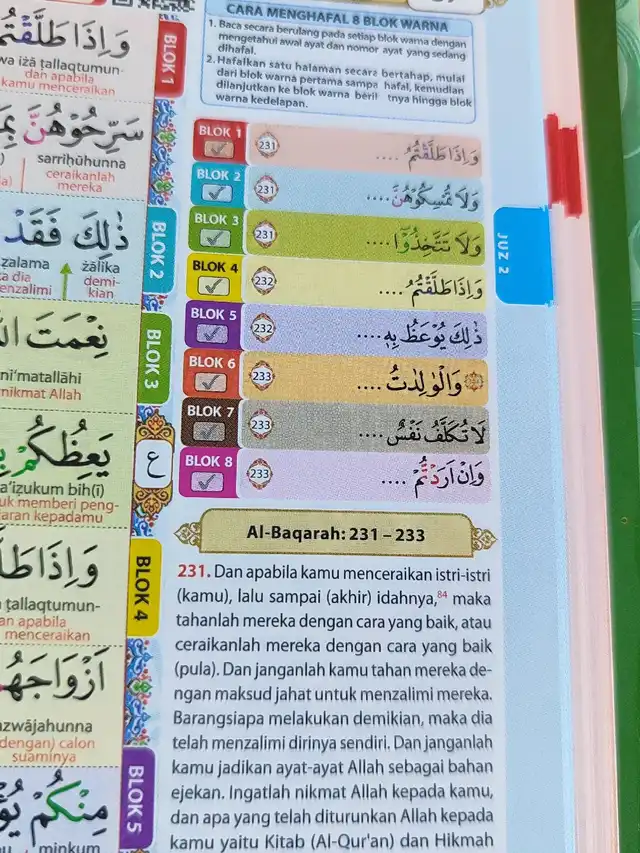 CARA MENGHAFAL 8 BLOK WARNA
1. Baca secara berulang pada setiap blok warna dengan
mengetahui awal ayat dan nomor ayat yang sedang
dihafal.
2. Hafalkan satu halaman secara bertahap, mulai
dari blok warna pertama sampa hafal, kemudian
dilanjutkan ke blok warna beri tnya hingga blok
warna kedelapan.
BLOK 1 231 وَاِذَا طَلَّقْتُمُ ....
BLOK 2 231 وَلَا تُمْسِكُوْهُنَّ ....
BLOK 3 231 وَلَا تَتَّخِذُوْٓا ....
BLOK 4 232 وَاِذَا طَلَّقْتُمُ ....
BLOK 5 232 ذٰلِكَ يُوْعَظُ بِهٖ ....
BLOK 6 233 وَالْوٰلِدٰتُ ....
BLOK 7 233 لَا تُكَلَّفُ نَفْسٌ ....
BLOK 8 233 وَاِنْ اَرَدْتُّمْ ....
JUZ 2
Al-Baqarah: 231 – 233
231. Dan apabila kamu menceraikan istri-istri
(kamu), lalu sampai (akhir) idahnya,84 maka
tahanlah mereka dengan cara yang baik, atau
ceraikanlah mereka dengan cara yang baik
(pula). Dan janganlah kamu tahan mereka de-
ngan maksud jahat untuk menzalimi mereka.
Barangsiapa melakukan demikian, maka dia
telah menzalimi dirinya sendiri. Dan janganlah
kamu jadikan ayat-ayat Allah sebagai bahan
ejekan. Ingatlah nikmat Allah kepada kamu,
dan apa yang telah diturunkan Allah kepada
kamu yaitu Kitab (Al-Qur'an) dan Hikmah
BLOK 1
وَاِذَا طَلَّقْتُمُ
wa iżā ṭallaqtumun-
dan apabila
kamu menceraikan
سَرِّحُوْهُنَّ
sarriḥūhunna
ceraikanlah
mereka
BLOK 2
ذٰلِكَ فَقَدْ
żālika
demi-
kian
BLOK 3
نِعْمَتَ
ni'matallāhi
nikmat Allah
ع
يَعِظُكُمْ
a'iẓukum bih(ī)
uk memberi peng-
aran kepadamu
BLOK 4
وَاِذَا
ṭallaqtumun-
an apabila
menceraikan
اَزْوَاجَهُ
azwājahunna
dengan) calon
suaminya
BLOK 5
مِنْكُمْ
minkum